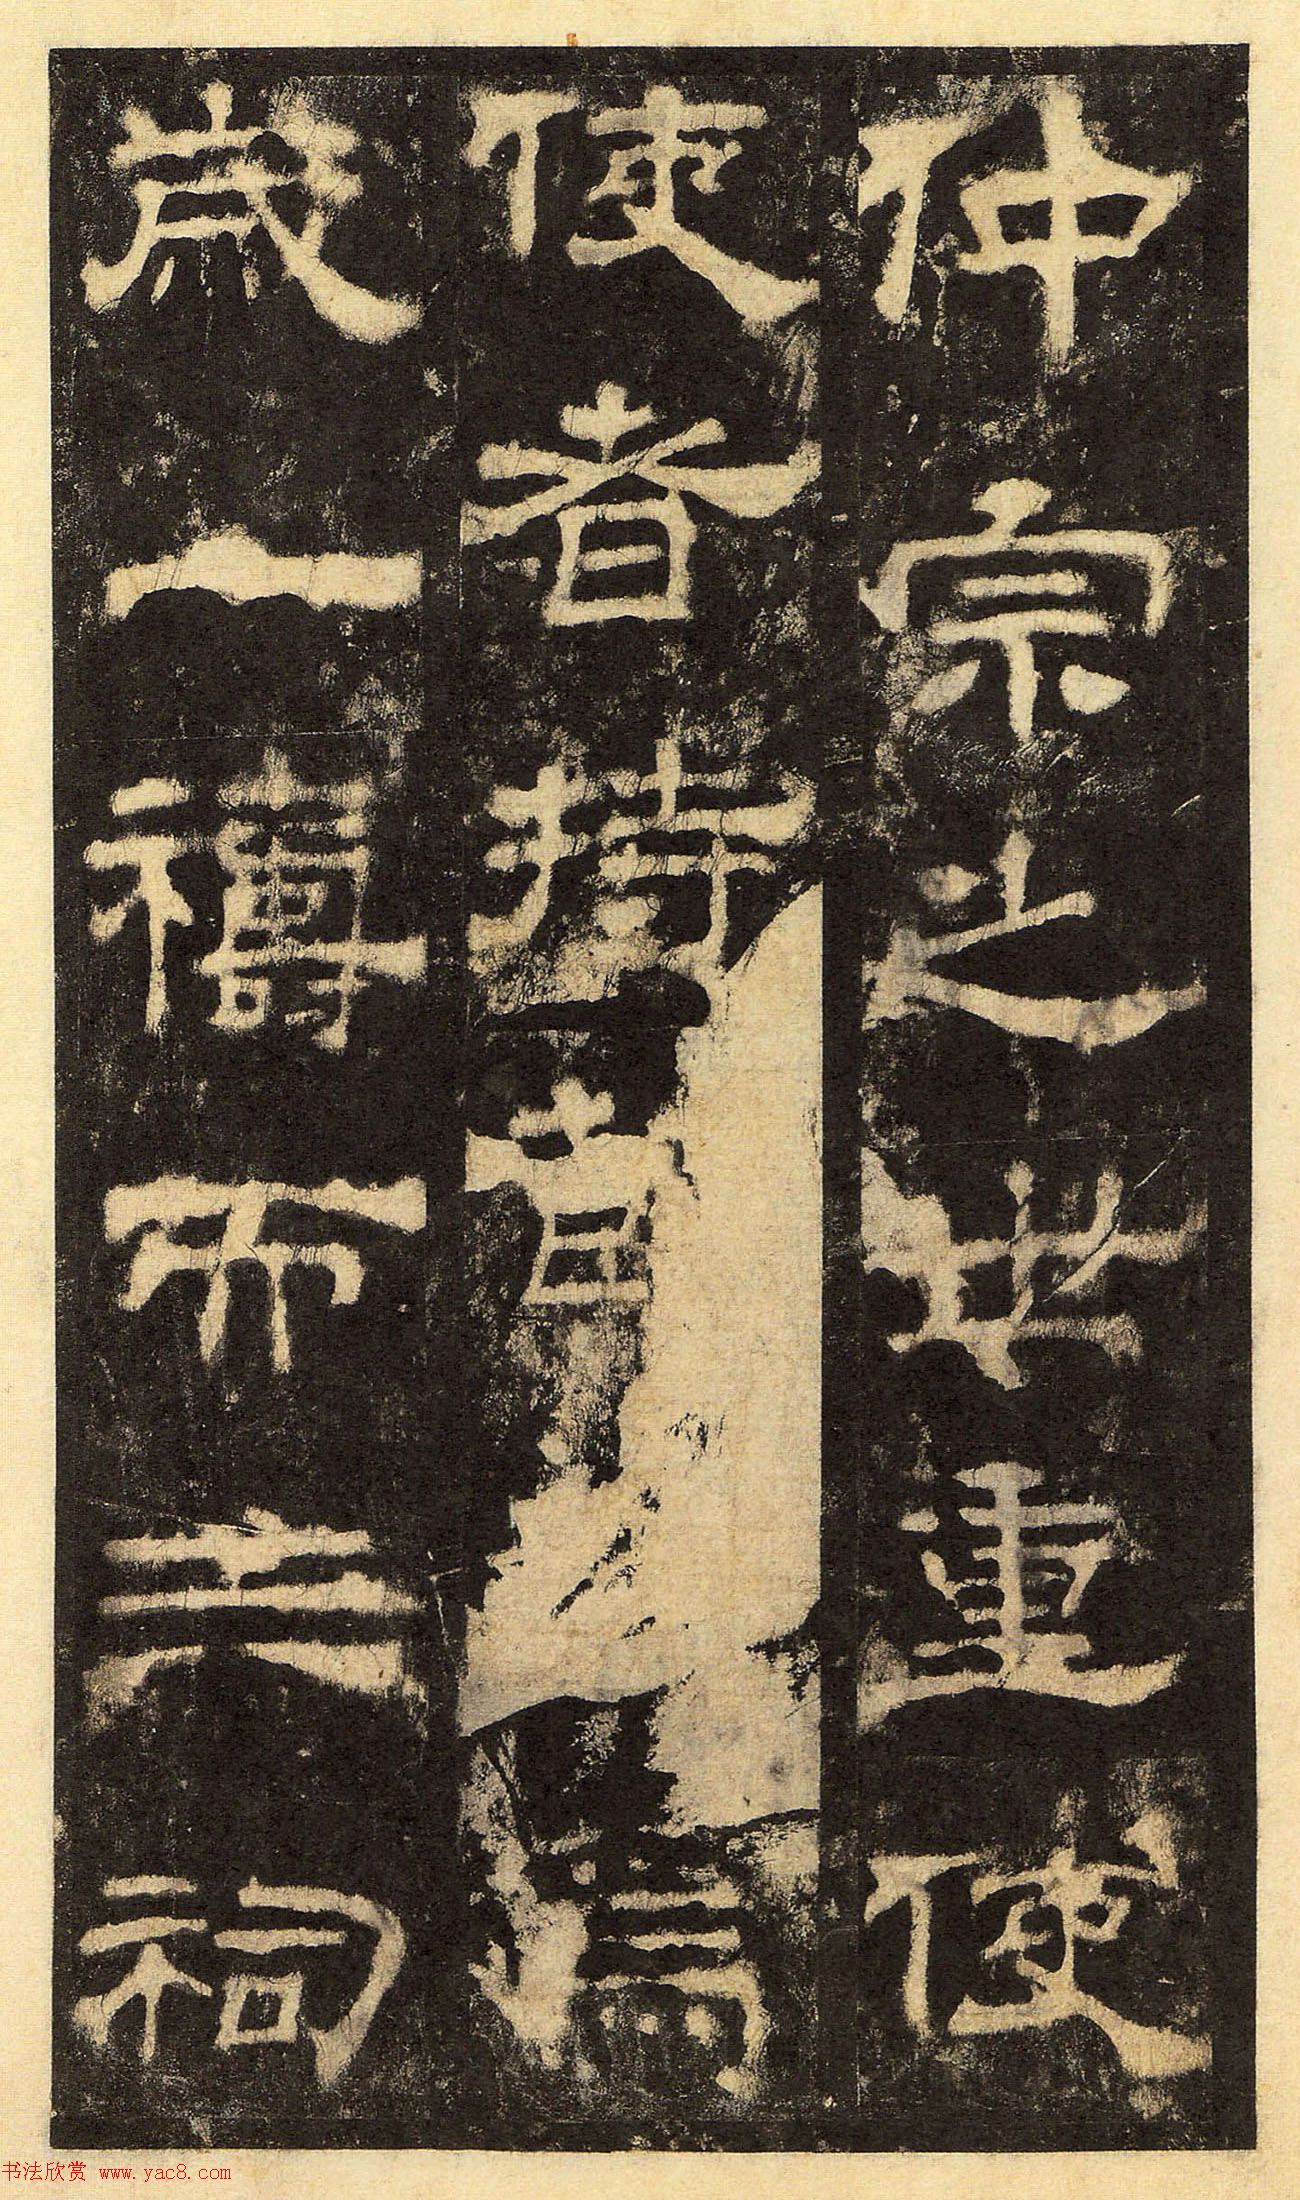 仲宗之世重使
使者持節焉
歲一禱而三祠
书法欣赏 www.yac8.com